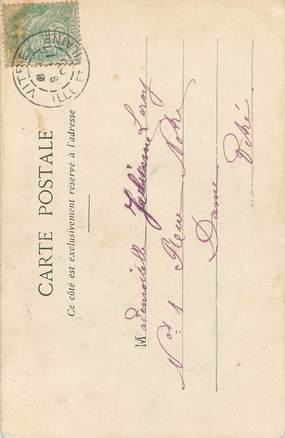 CARTE POSTALE
Ce côté est exclusivement réservé à l'adresse
VITRÉ
ILLE ET
Mademoiselle Leroy
No 1 Rue Notre
Dame